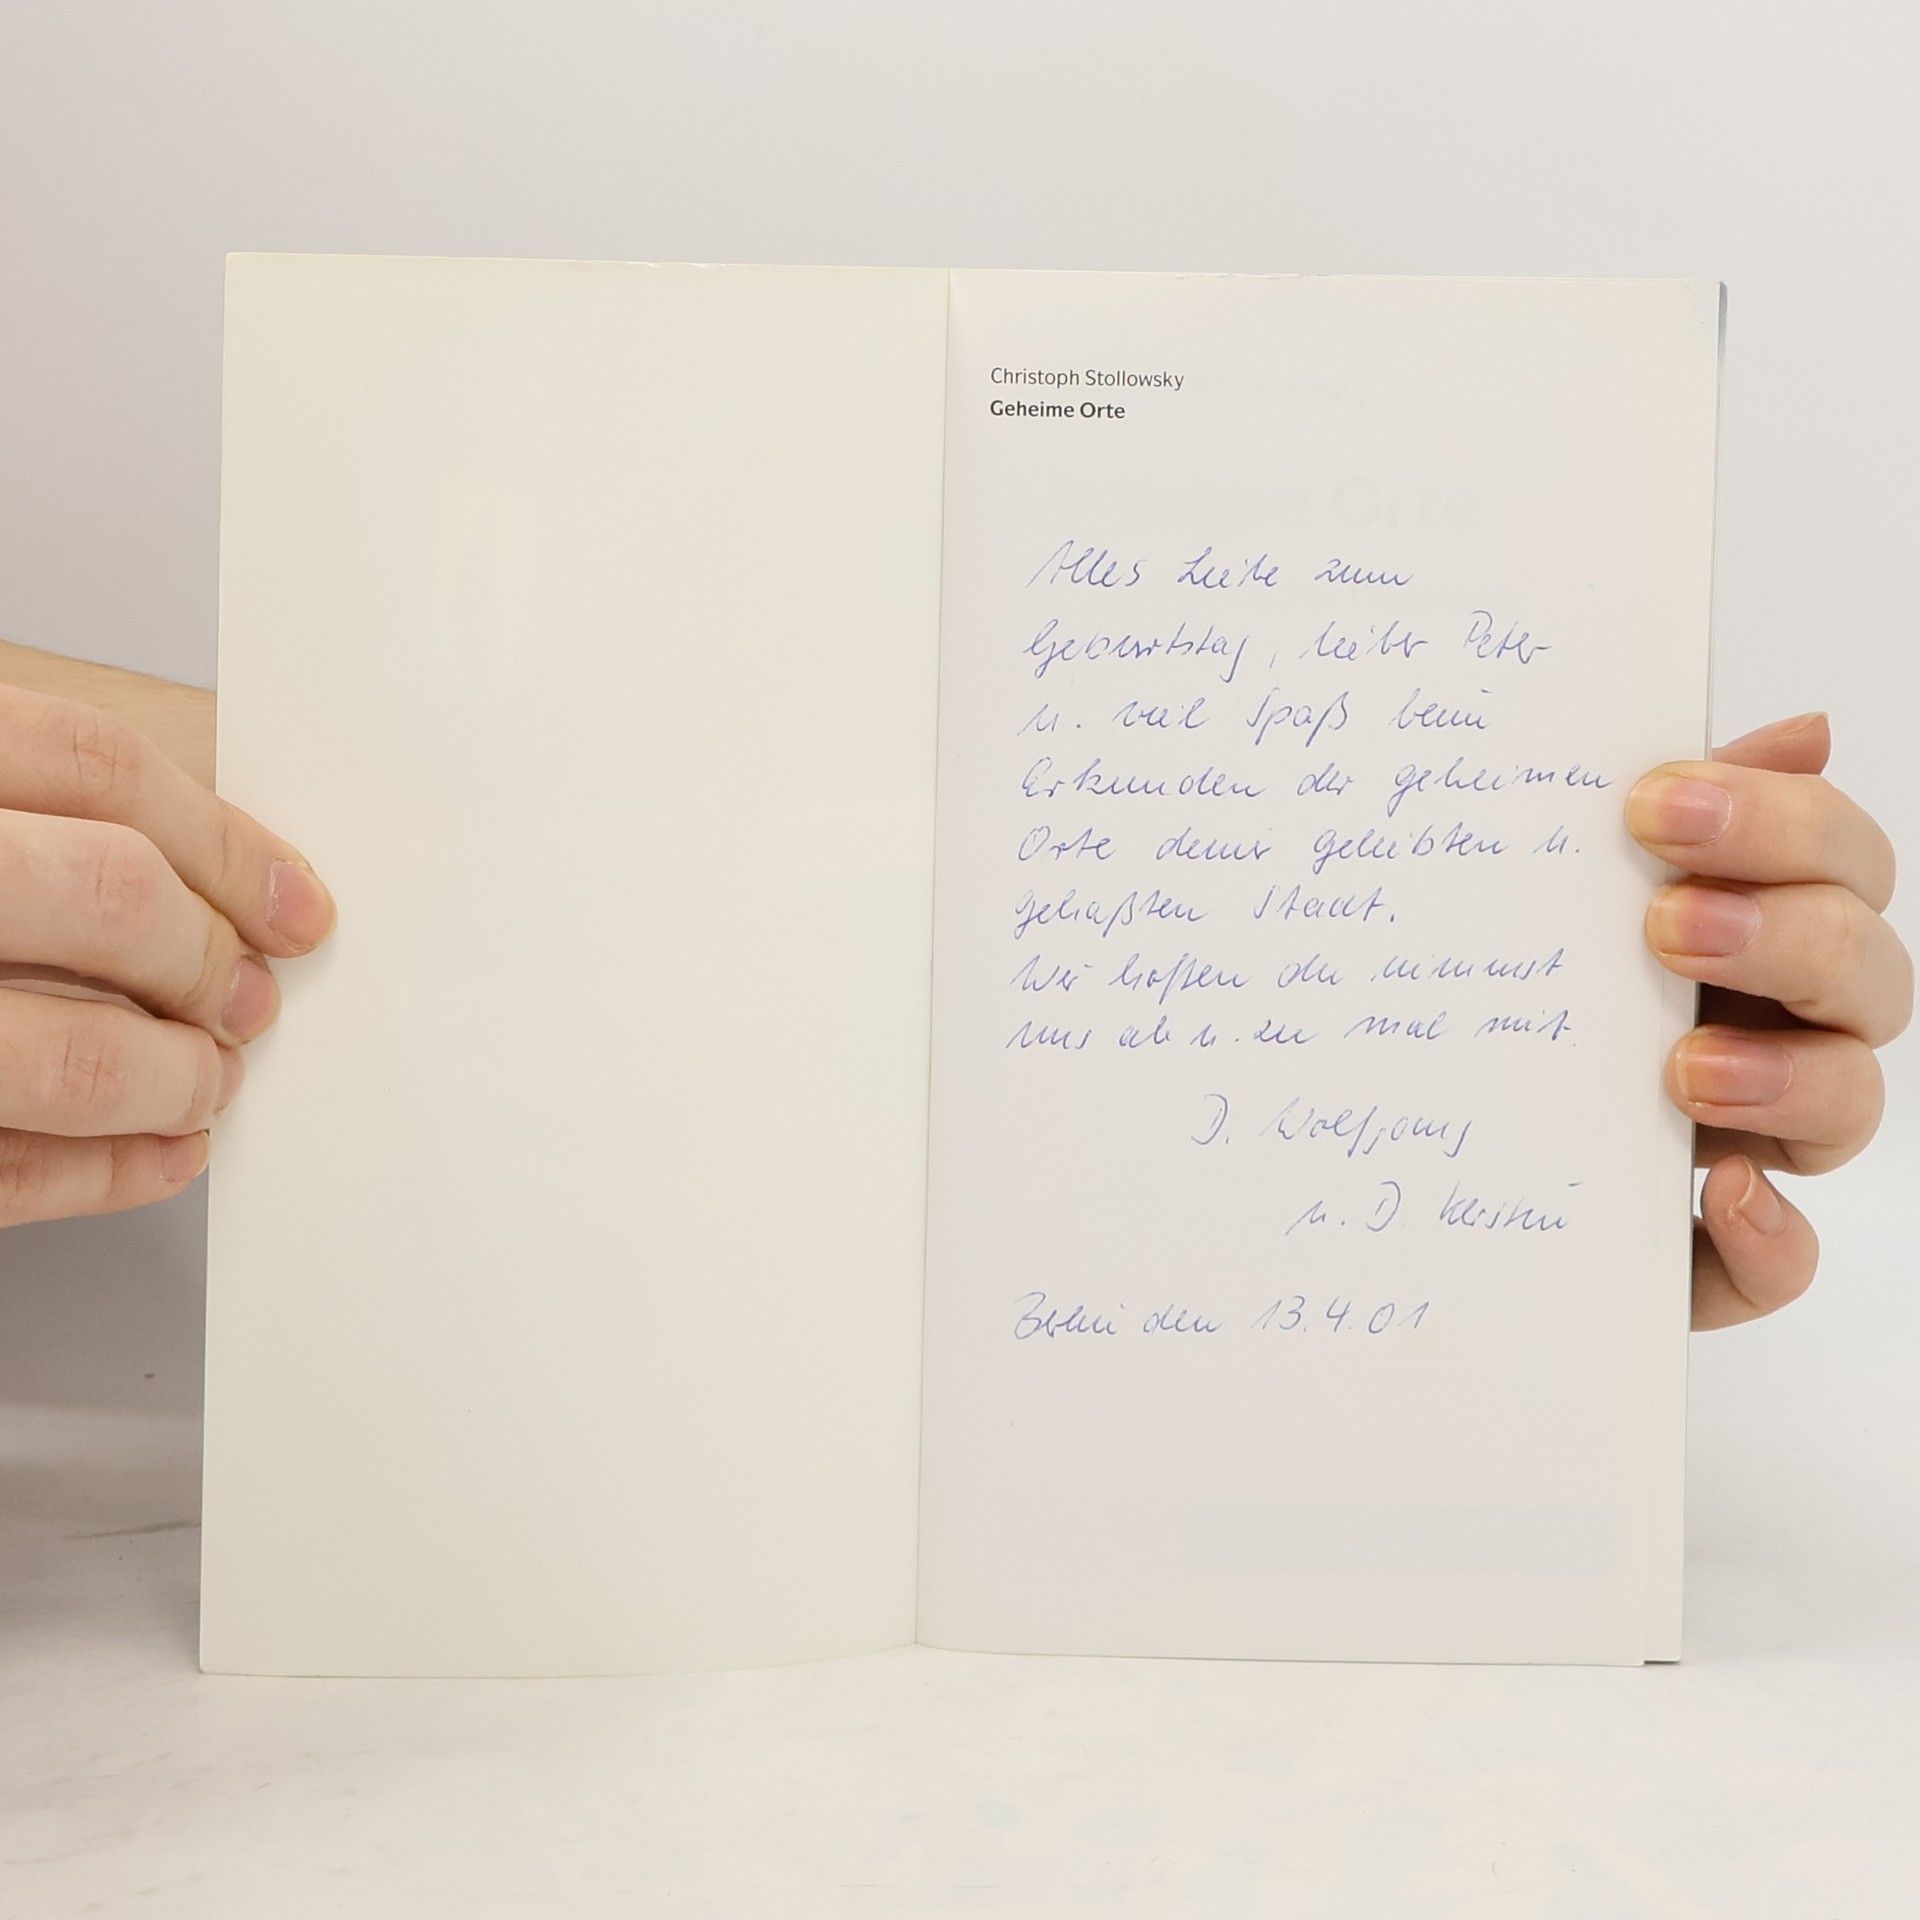 Christoph Stollowsky
Geheime Orte
Alles Liebe zum
Geburtstag, lieber Peter
u. viel Spaß beim
Erkunden der geheimen
Orte deiner geliebten u.
gehaßten Stadt.
Wir hoffen du nimmst
uns ab u. zu mal mit.
D. Wolfgang
u. D. Kerstin
Berlin den 13.4.01